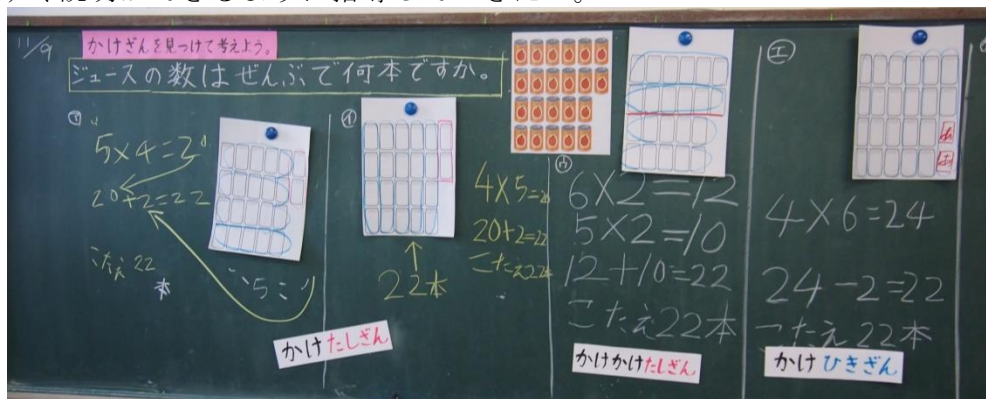 11/9
かけざんを見つけて考えよう。
ジュースの数はぜんぶで何本ですか。
㋐
5×4=20
20+2=22
こたえ22
本
㋑
22本
4×5=20
20+2=22
こたえ22本
かけたしざん
㋒
6×2=12
5×2=10
12+10=22
こたえ22本
かけかけたしざん
㋓
4×6=24
24-2=22
こたえ22本
かけひきざん